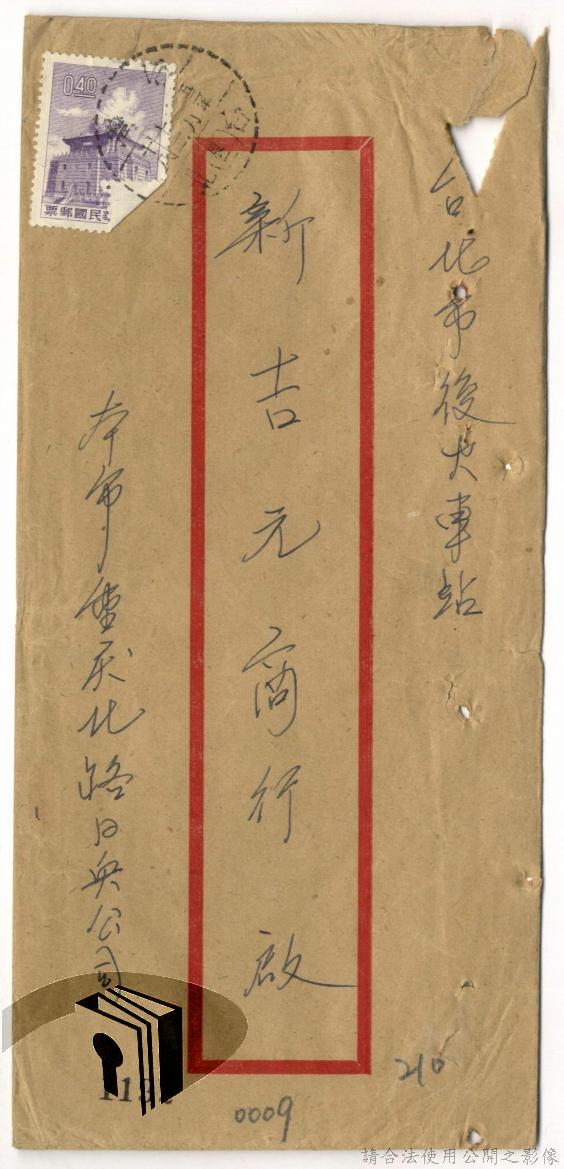 台北市後火車站
新吉元商行 啟
本市重慶北路日興公司
0.40
票郵國民
210
0009
請合法使用公開之影像